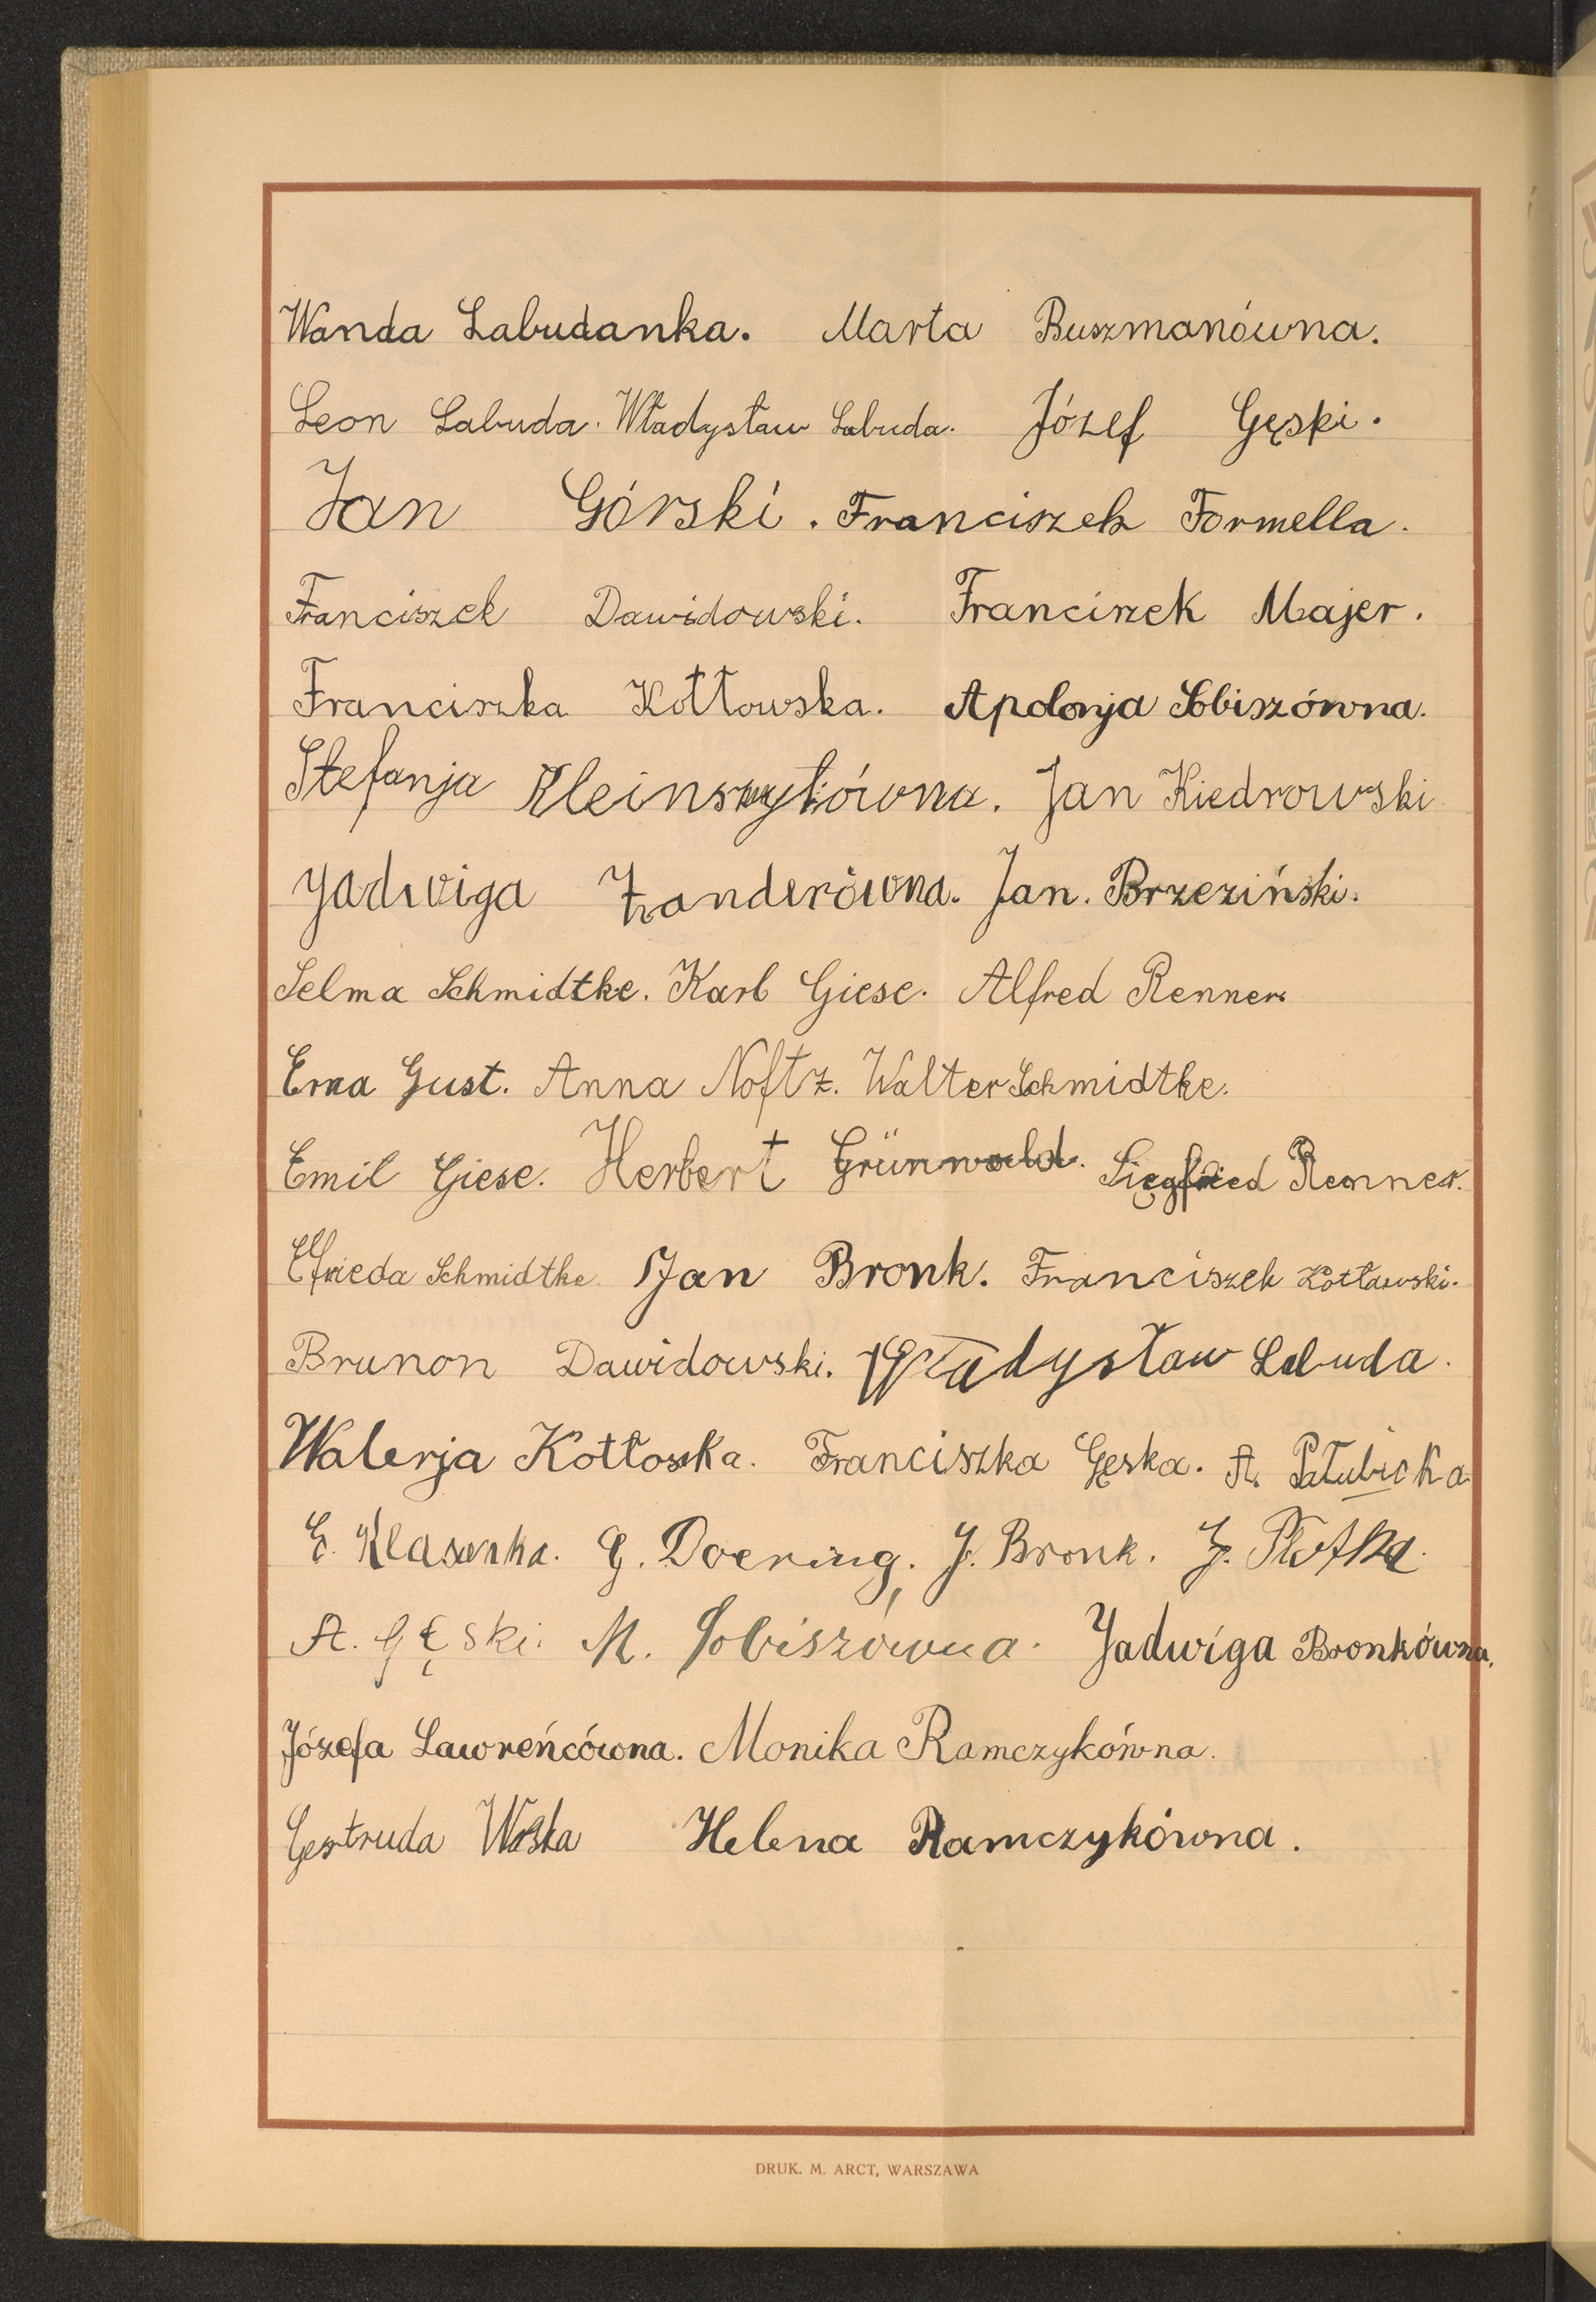 Wanda Labudanka. Marta Buszmanówna.
Leon Labuda. Władysław Labuda. Józef Gęski.
Jan Górski. Franciszek Formella.
Franciszek Dawidowski. Franciszek Majer.
Franciszka Kottowska. Apolonja Sobiszówna.
Stefanja Kleinszytówna. Jan Kiedrowski
Jadwiga Zanderówna. Jan. Brzeziński.
Selma Schmidtke. Karl Giese. Alfred Renner.
Erna Gust. Anna Noftz. Walter Schmidtke.
Emil Giese. Herbert Grünwald. Siegfried Renner.
Elfrieda Schmidtke. Jan Bronk. Franciszek Kottowski.
Brunon Dawidowski. Władysław Labuda.
Walerja Kottoska. Franciszka Gęska. A. Pałubicka
E. Klasenka. G. Doering, J. Bronk. J. Płotka.
A. Gęski. M. Sobiszówna. Jadwiga Bronkówna.
Józefa Lawreńcówna. Monika Ramczykówna.
Gertruda Helena Ramczykówna.
DRUK. M. ARCT, WARSZAWA